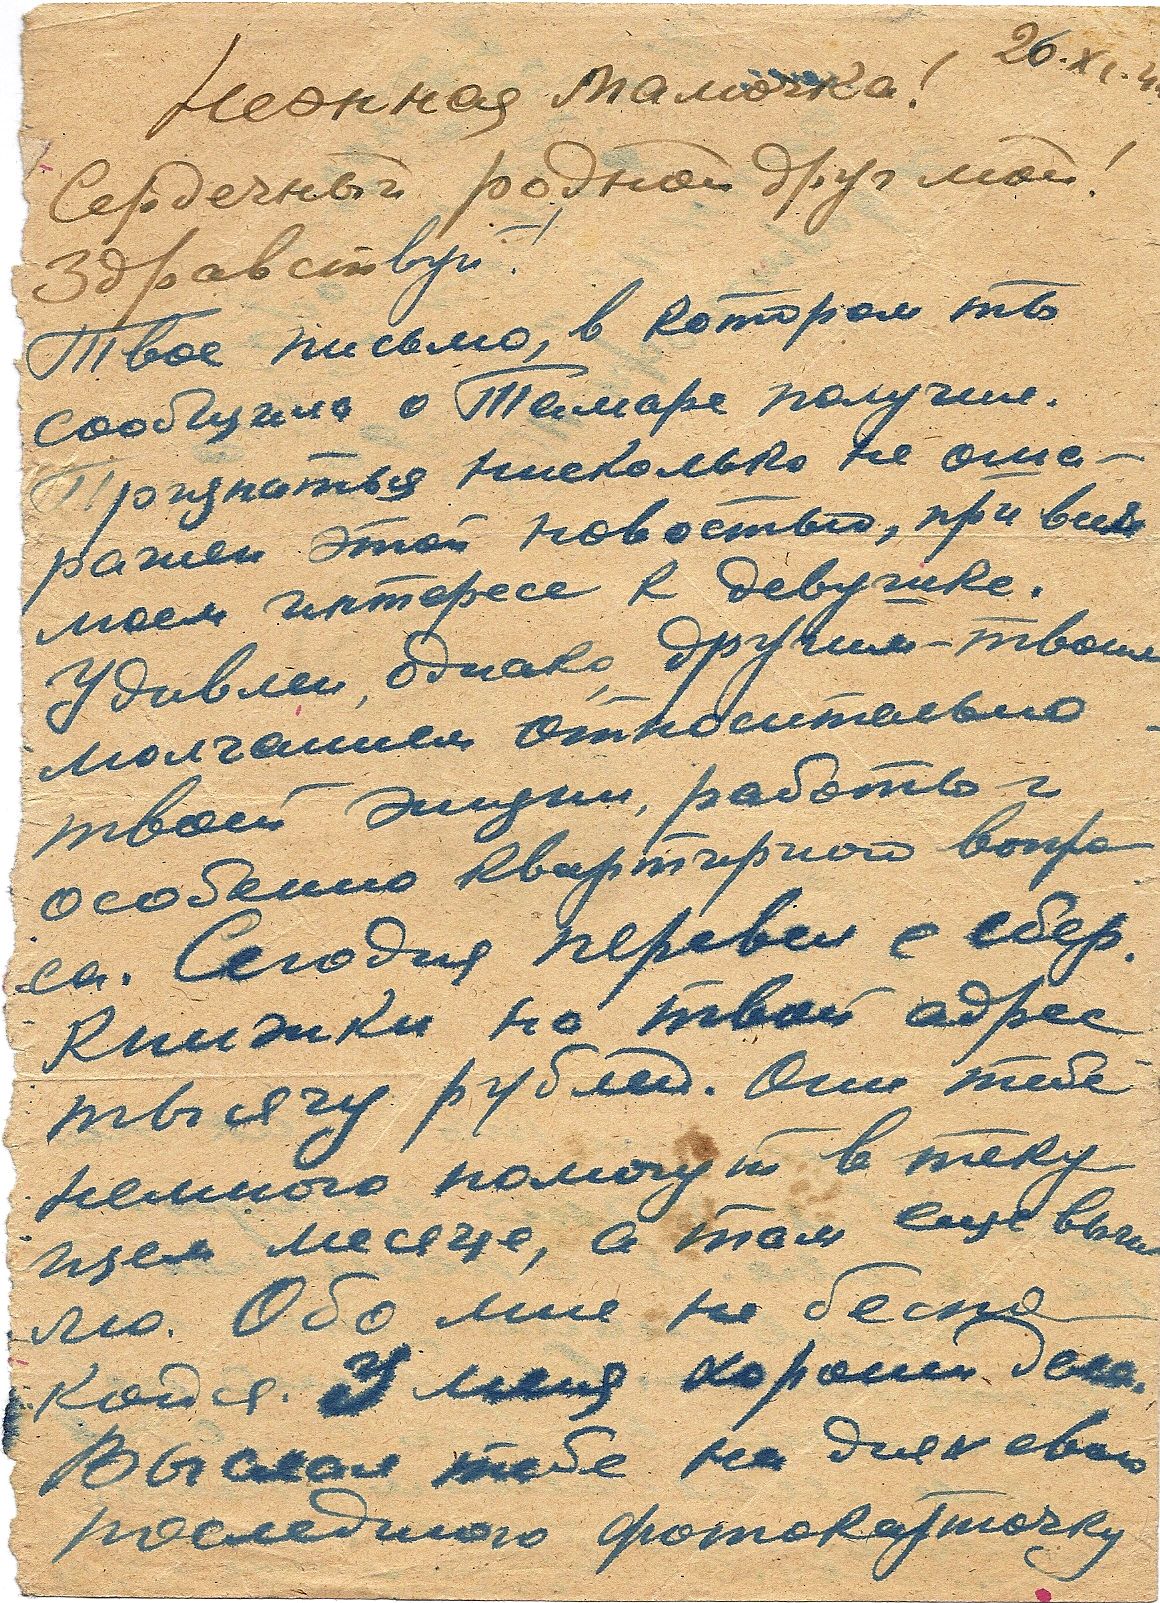 26.XI.4
Нежная мамочка!
Сердечный родной друг мой!
Здравствуй!
Твое письмо, в котором ты
сообщила о Тамаре получил.
Признаться нисколько не оша-
рашен этой новостью, при всем
моем интересе к девушке.
Удивлен, однако, другим – твоим
молчанием относительно
твоей жизни, работы и
особенно квартирного вопро
са. Сегодня перевел с сбер.
книжки на твой адрес
тысячу рублей. Они тебе
немного помогут в теку
щем месяце, а там еще вышл
лю. Обо мне не беспо
койся. У меня хороши дела.
Выслал тебе на днях свою
последнюю фотокарточку